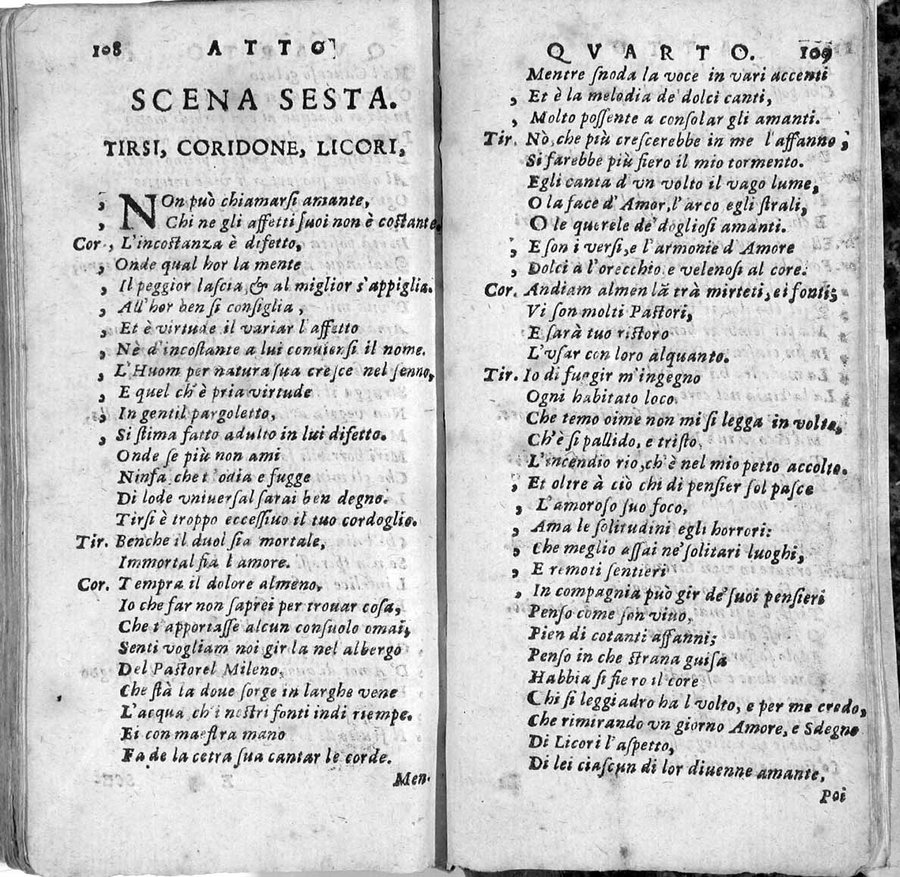 108 ATTO
SCENA SESTA.
TIRSI, CORIDONE, LICORI,
, NOn può chiamarsi amante,
, Chi ne gli affetti suoi non è costante.
Cor., L'incostanza è difetto,
, Onde qual hor la mente
, Il peggior lascia, & al miglior s'appiglia.
, All'hor ben si consiglia,
, Et è virtude il variar l'affetto
, Nè d'incostante a lui conuiensi il nome.
, L'Huom per natura sua cresce nel senno,
, E quel ch'è pria virtude
, In gentil pargoletto,
, Si stima fatto adulto in lui difetto.
Onde se più non ami
Ninfa che t'odia e fugge
Di lode vniuersal sarai ben degno.
Tirsi è troppo eccessiuo il tuo cordoglio.
Tir. Benche il duol sia mortale,
Immortal fia l'amore.
Cor. Tempra il dolore almeno,
Io che far non saprei per trouar cosa,
Che t'apportasse alcun consuolo omai,
Senti vogliam noi gir la nel albergo
Del Pastorel Mileno,
Che stà la doue sorge in larghe vene
L'acqua ch'i nostri fonti indi riempe.
Ei con maestra mano
Fa de la cetra sua cantar le corde.
Men-
QVARTO. 109
Mentre snoda la voce in vari accenti
, Et è la melodia de' dolci canti,
, Molto possente a consolar gli amanti.
Tir. Nò, che più crescerebbe in me l'affanno;
Si farebbe più fiero il mio tormento.
Egli canta d'vn volto il vago lume,
O la face d'Amor, l'arco e gli strali,
O le querele de' dogliosi amanti.
, E son i versi, e l'armonie d'Amore
, Dolci a l'orecchio, e velenosi al core.
Cor. Andiam almen là trà mirteti, e i fonti;
Vi son molti Pastori,
E sarà tuo ristoro
L'vsar con loro alquanto.
Tir. Io di fuggir m'ingegno
Ogni habitato loco
Che temo oime non mi si legga in volto,
Ch'è si pallido, e tristo,
L'incendio rio, ch'è nel mio petto accolto.
, Et oltre à ciò chi di pensier sol pasce
, L'amoroso suo foco,
, Ama le solitudini e gli horrori:
, Che meglio assai ne' solitari luoghi,
, E remoti sentieri
, In compagnia può gir de' suoi pensieri
Penso come son viuo,
Pien di cotanti affanni;
Penso in che strana guisa
Habbia si fiero il core
Chi si leggiadro ha l volto, e per me credo,
Che rimirando vn giorno Amore, e Sdegno
Di Licori l'aspetto,
Di lei ciascun di lor diuenne amante,
Poi